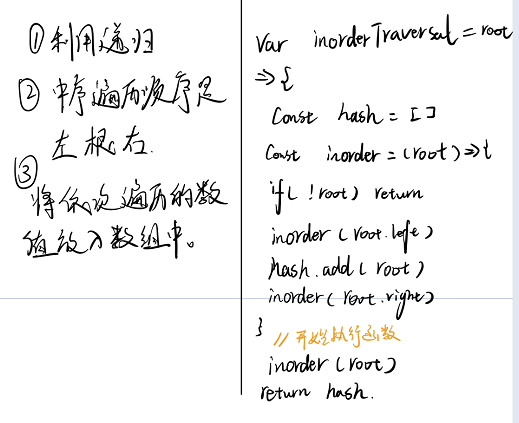 ① 利用递归
② 中序遍历顺序是
左根右.
③
将依次遍历的数
值放入数组中。
Var inorderTraversal = root
=> {
Const hash = []
Const inorder = (root) => {
if( !root) return
inorder (root.left)
hash.add( root)
inorder( root.right)
}
// 开始执行函数
inorder (root)
return hash.